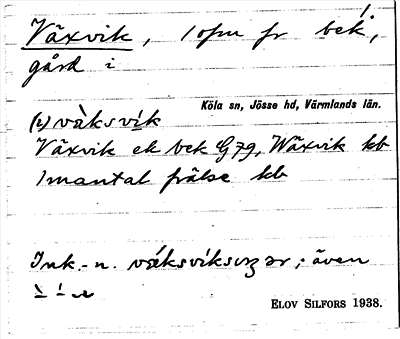 Växvik, 1 ofm fr bek,
gård i
Köla sn, Jösse hd, Värmlands län.
(e) vàksvík
Växvik ek bek G 79, Wäxvik kb
1 mantal frälse kb
Ink.-n. ; även
ELOV SILFORS 1938.